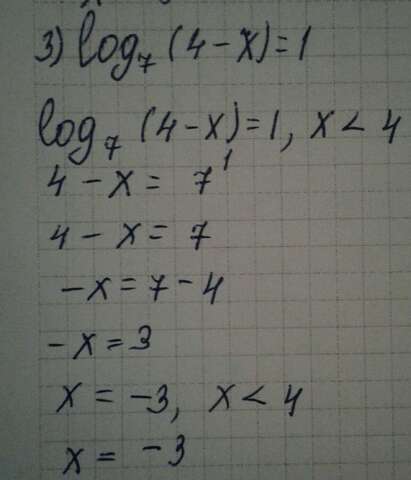 3) log₇ (4 - x) = 1
log₇ (4 - x) = 1, x < 4
4 - x = 7¹
4 - x = 7
-x = 7 - 4
-x = 3
x = -3, x < 4
x = -3